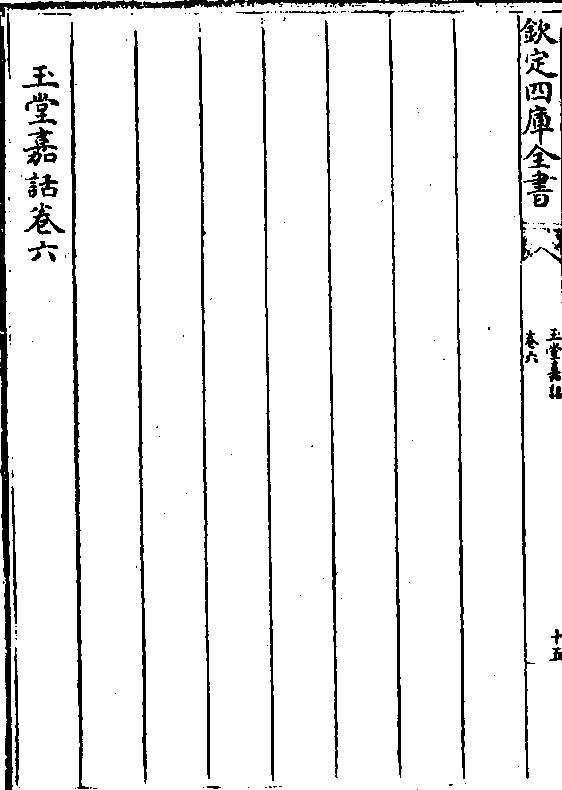 欽定四庫全書
玉堂嘉話
卷六
十五
玉堂嘉話卷六